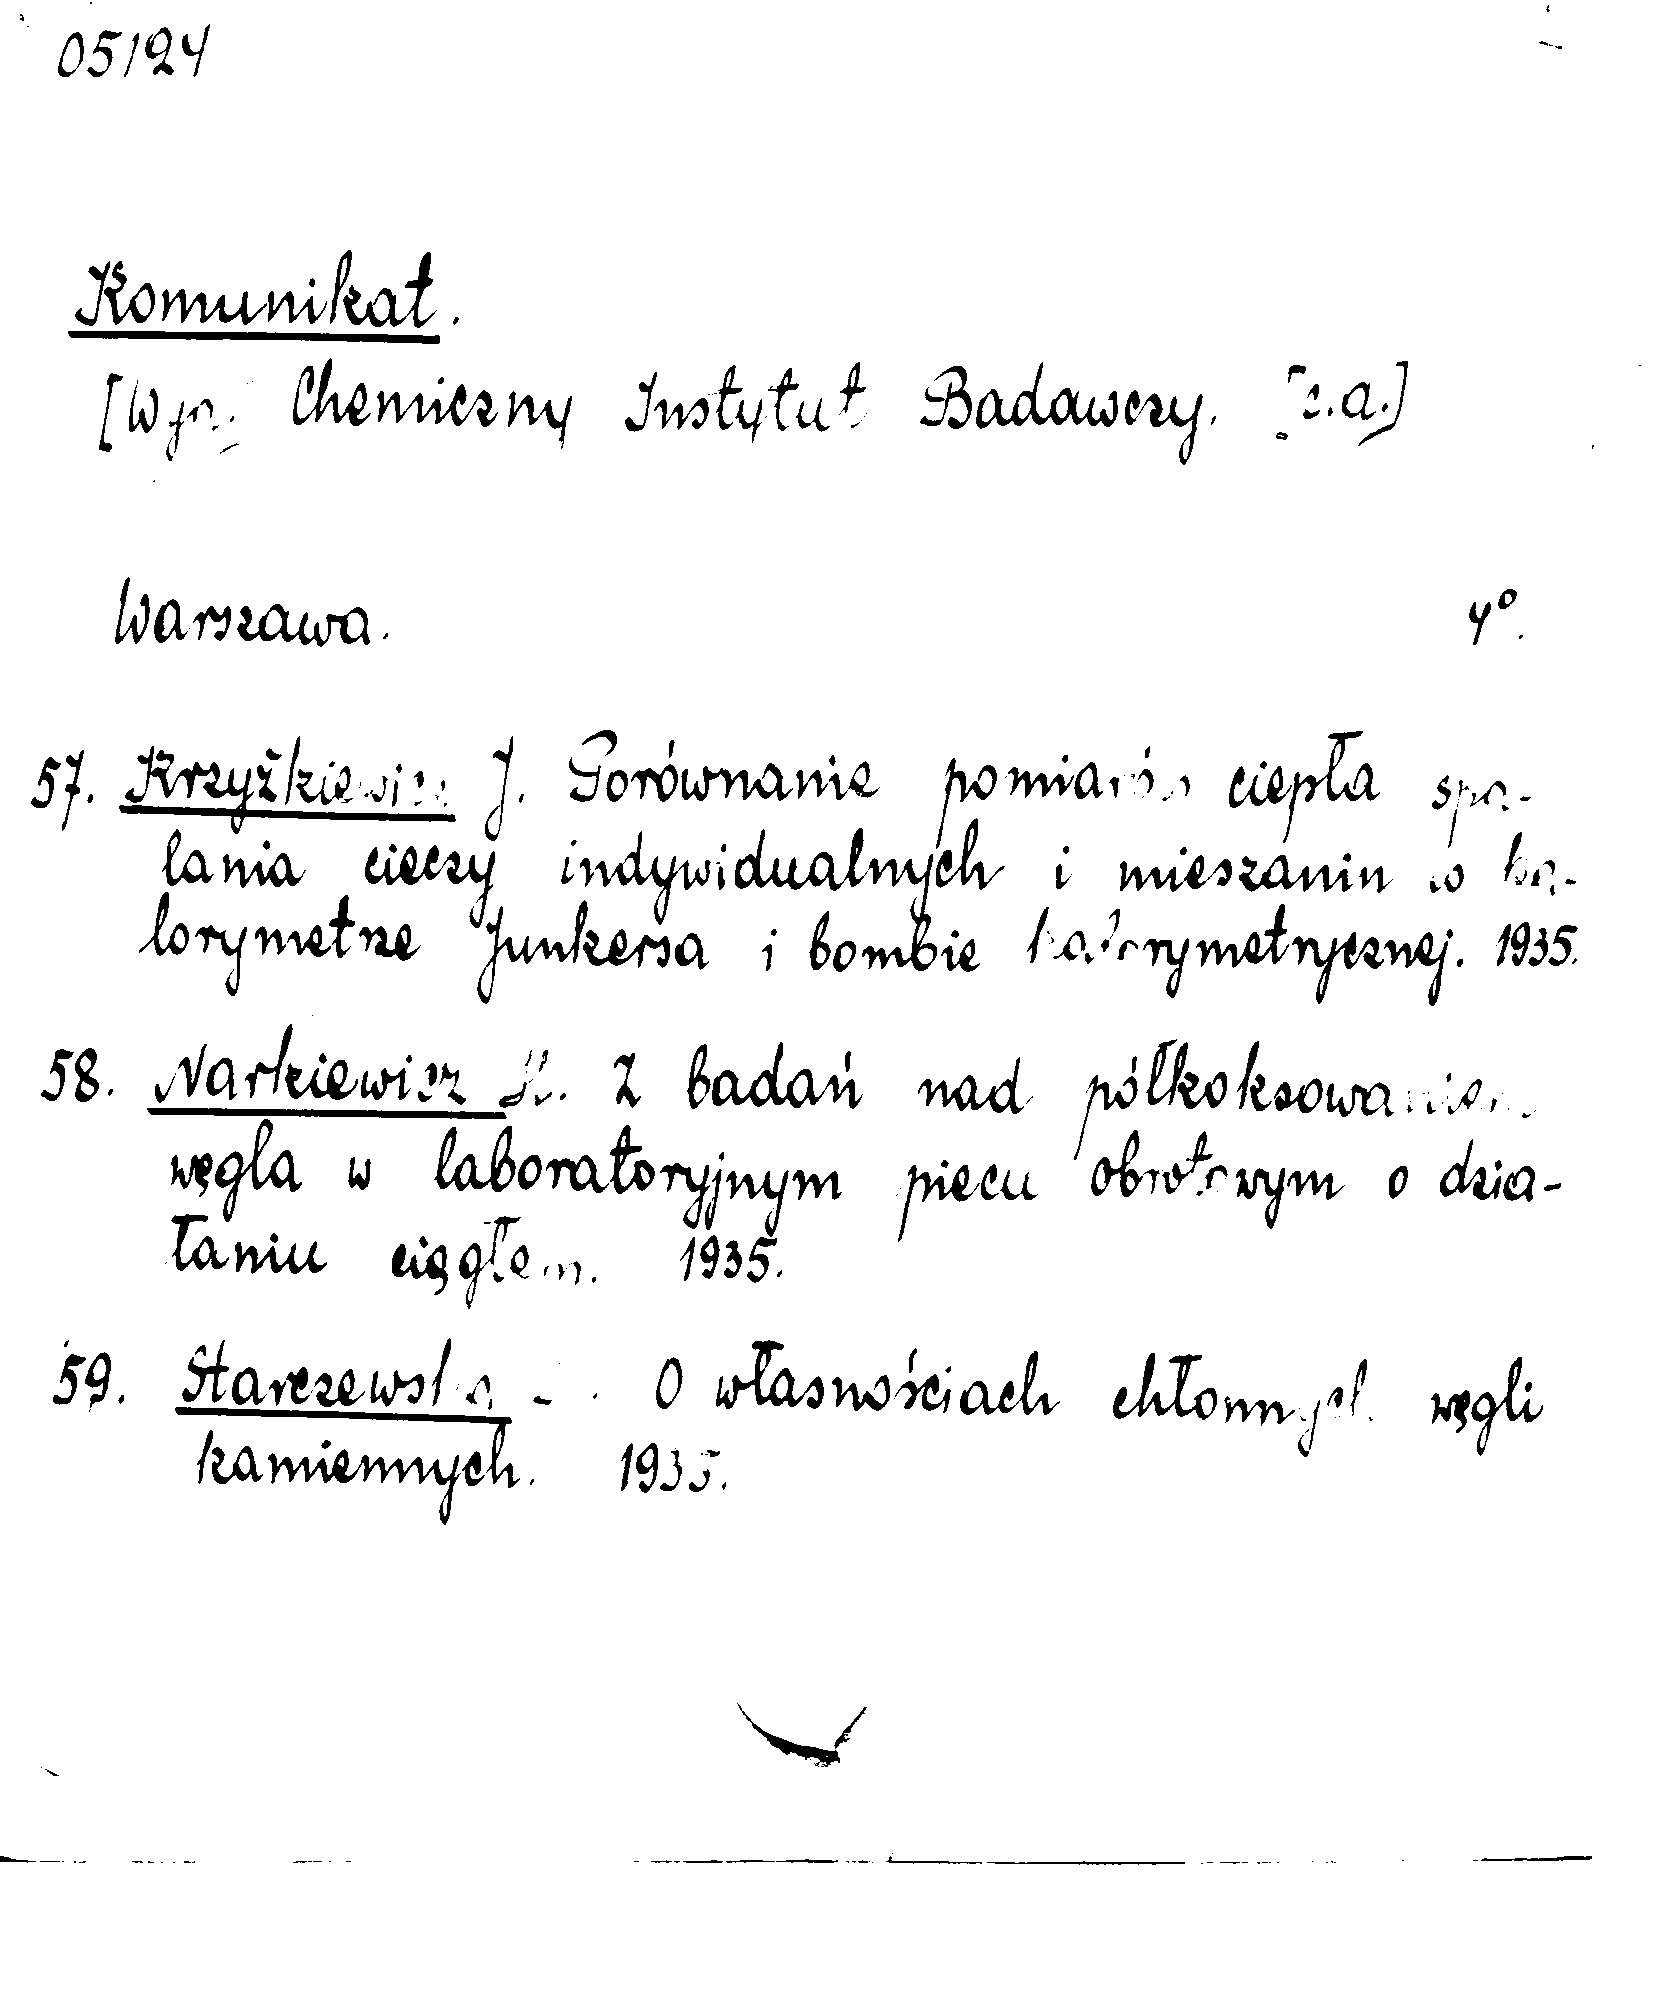 05124
Komunikat.
[Wyd. Chemiczny Instytut Badawczy. [s.a.]
Warszawa. 4º.
57. Krzyżkiewicz J. Porównanie pomiarów ciepła spa-
lania cieczy indywidualnych i mieszanin w ka-
lorymetrze Junkersa i bombie kalorymetrycznej. 1935.
58. Narkiewicz Z badań nad półkoksowaniem
węgla w laboratoryjnym piecu obrotowym o dzia-
łaniu ciągłem. 1935.
59. Starczewska O własnościach chłonnych węgli
kamiennych. 1935.